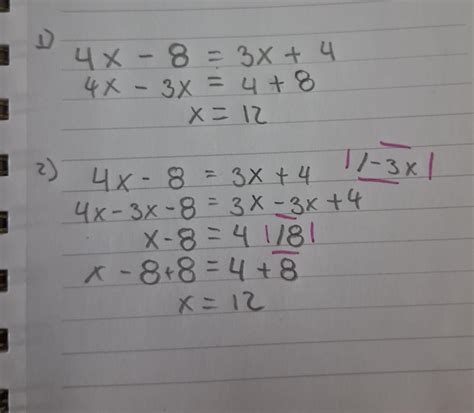 1)
4x - 8 = 3x + 4
4x - 3x = 4 + 8
x = 12
2)
4x - 8 = 3x + 4 | /-3x |
4x - 3x - 8 = 3x - 3x + 4
x - 8 = 4 | /8 |
x - 8 + 8 = 4 + 8
x = 12